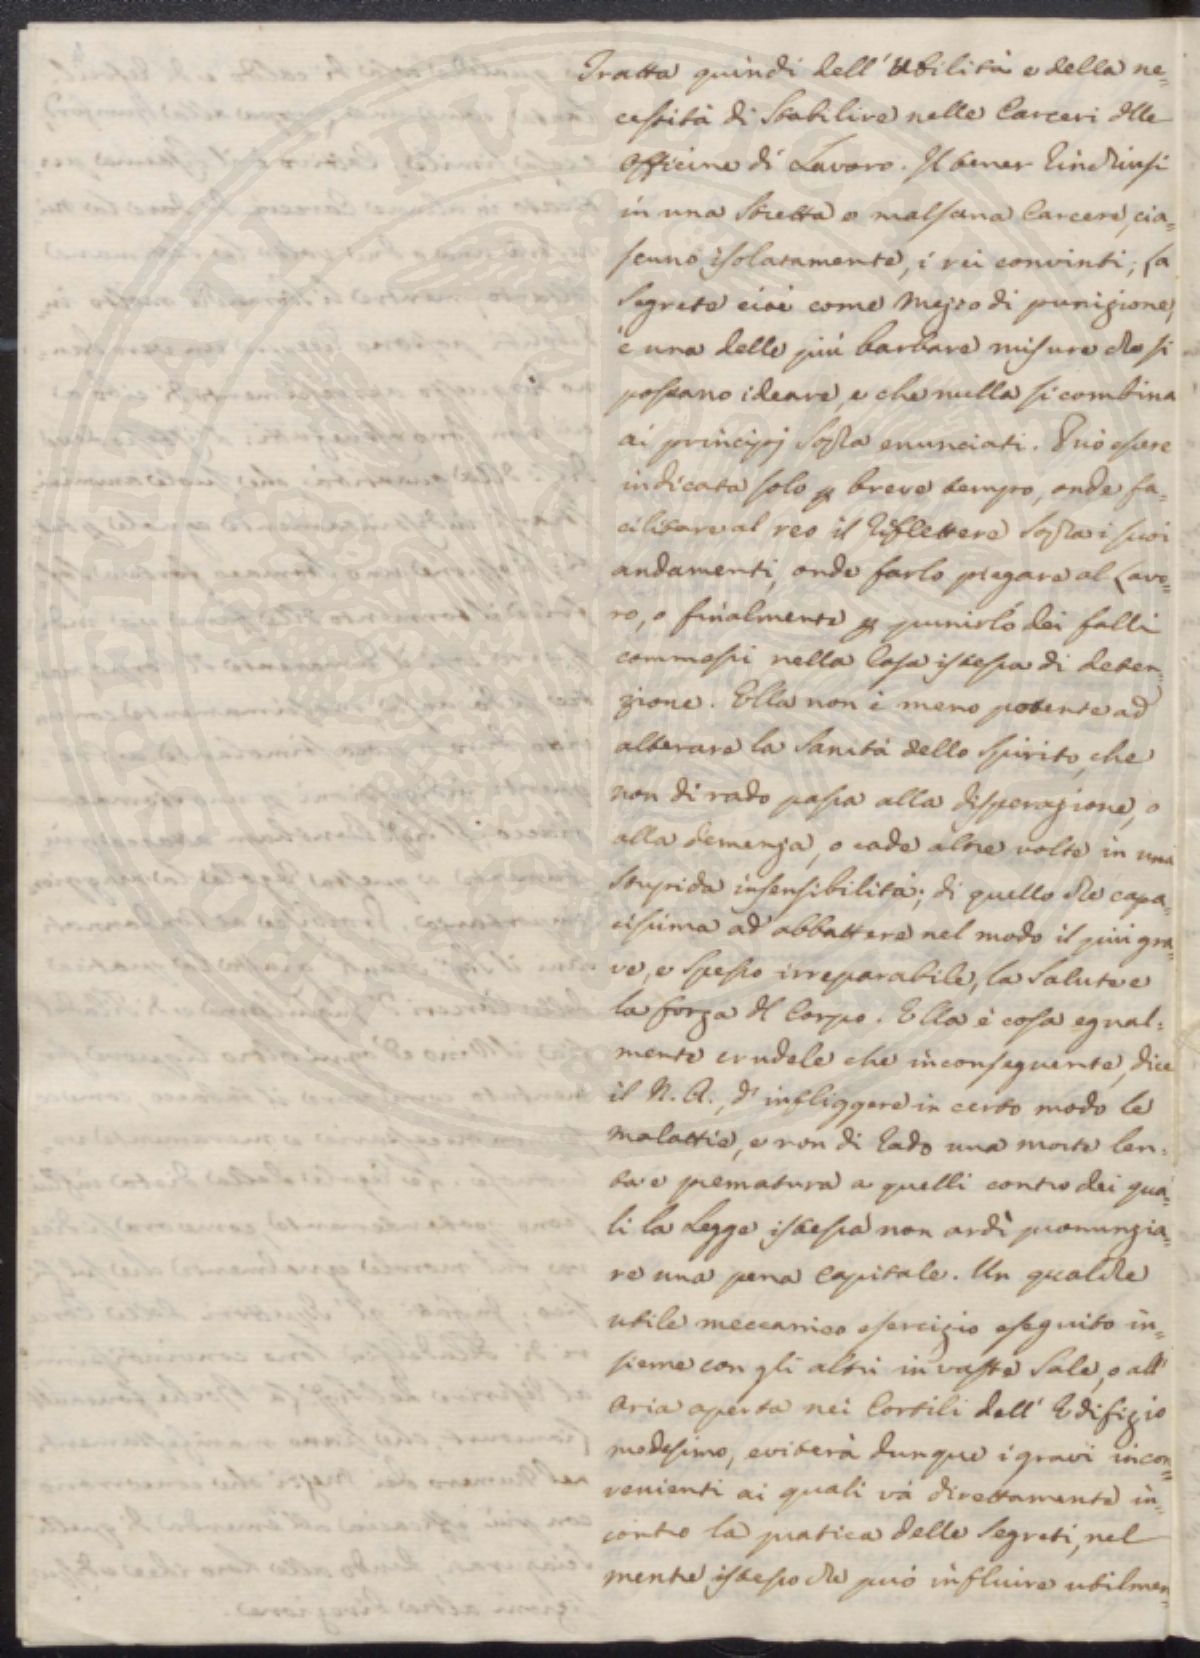 Tratta quindi dell'Utilità e della ne=
cessità di stabilire nelle Carceri delle
Officine di Lavoro. Il tener rinchiusi
in una stretta e malsana Carcere, cia=
scuno isolatamente, i rei convinti, la
segreta cioè come mezzo di punizione,
è una delle più barbare misure che si
possano ideare, e che nulla si combina
ai principj sopra enunciati. Può essere
indicata solo per breve tempo, onde fa=
cilitare al reo il riflettere sopra i suoi
andamenti, onde farlo piegare al Lavo=
ro, o finalmente per punirlo dei falli
commessi nella Casa istessa di deten=
zione. Ella non è meno potente ad
alterare la Sanità dello Spirito, che
non di rado passa alla disperazione, o
alla demenza, o cade altre volte in una
stupida insensibilità; di quello che capa=
cissima ad abbattere nel modo il più gra=
ve, e spesso irreparabile, la salute e
la forza del Corpo. Ella è cosa egual=
mente crudele che inconseguente, dice
il N. A., d'infliggere in certo modo le
malattie, e non di rado una morte len=
ta e prematura a quelli contro dei qua=
li la Legge istessa non ardì pronunzia=
re una pena Capitale. Un qualche
utile meccanico esercizio eseguito in=
sieme con gli altri in vaste Sale, o all'
Aria aperta nei Cortili dell'Edifizio
medesimo, eviterà dunque i gravi incon=
venienti ai quali và direttamente in=
contro la pratica delle Segreti, nel
mentre istesso che può influire utilmen=